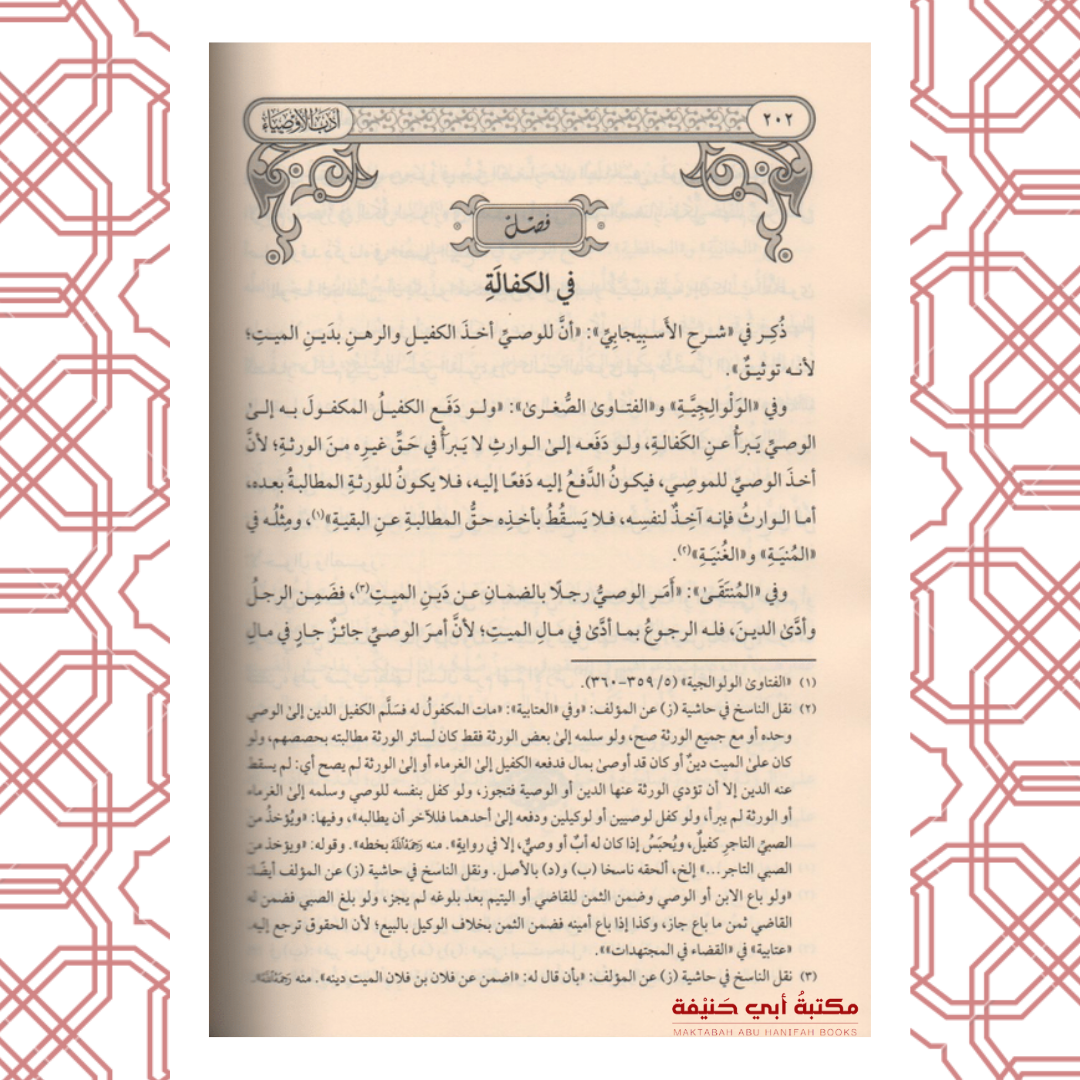 ٢٠٢
أدب الأوصياء
فصل
في الكفالَةِ
ذُكِر في «شرح الأَسبيجابيِّ»: «أنَّ للوصيِّ أخذَ الكفيل والرهنِ بدَينِ الميتِ؛
لأنه توثيقٌ».
وفي «الوَلْوالِجيَّةِ» و«الفتاوىٰ الصُّغرىٰ»: «ولو دَفَع الكفيلُ المكفولَ به إلىٰ
الوصيِّ يَبرأُ عنِ الكَفالةِ، ولو دَفَعه إلىٰ الوارثِ لا يَبرأُ في حَقِّ غيرِه منَ الورثةِ؛ لأنَّ
أخذَ الوصيِّ للموصِي، فيكونُ الدَّفعُ إليه دَفعًا إليه، فلا يكونُ للورثةِ المطالبةُ بعده،
أما الوارثُ فإنه آخِذٌ لنفسِه، فلا يَسقُطُ بأخذِه حقُّ المطالبةِ عنِ البقيةِ»(١)، ومِثْلُه في
«المُنيَةِ» و«الغُنيَةِ»(٢).
وفي «المُنتَقَىٰ»: «أَمَر الوصيُّ رجلًا بالضمانِ عن دَينِ الميتِ(٣)، فضَمِن الرجلُ
وأدَّىٰ الدينَ، فله الرجوعُ بما أدَّىٰ في مالِ الميتِ؛ لأنَّ أمرَ الوصيِّ جائزٌ جارٍ في مالِ
(١) «الفتاوىٰ الولوالجية» (٥/ ٣٥٩-٣٦٠).
(٢) نقل الناسخ في حاشية (ز) عن المؤلف: «وفي «العتابية»: «مات المكفولُ له فسَلَّم الكفيل الدين إلىٰ الوصي
وحده أو مع جميع الورثة صح، ولو سلمه إلىٰ بعض الورثة فقط كان لسائر الورثة مطالبته بحصصهم، ولو
كان علىٰ الميت دينٌ أو كان قد أوصىٰ بمال فدفعه الكفيل إلىٰ الغرماء أو إلىٰ الورثة لم يصح أي: لم يسقط
عنه الدين إلا أن تؤدي الورثة عنها الدين أو الوصية فتجوز، ولو كفل بنفسه للوصي وسلمه إلىٰ الغرماء
أو الورثة لم يبرأ، ولو كفل لوصيين أو لوكيلين ودفعه إلىٰ أحدهما فللآخر أن يطالبه»، وفيها: «ويُؤخذُ من
الصبيِّ التاجرِ كفيلٌ، ويُحبَسُ إذا كان له أبٌ أو وصيٌّ، إلا في روايةٍ». منه رَحِمَهُ اللَّهُ بخطه». وقوله: «ويؤخذ من
الصبي التاجر...» إلخ، ألحقه ناسخا (ب) و(د) بالأصل. ونقل الناسخ في حاشية (ز) عن المؤلف أيضًا:
«ولو باع الابن أو الوصي وضمن الثمن للقاضي أو اليتيم بعد بلوغه لم يجز، ولو بلغ الصبي فضمن له
القاضي ثمن ما باع جاز، وكذا إذا باع أمينه فضمن الثمن بخلاف الوكيل بالبيع؛ لأن الحقوق ترجع إليه.
«عتابية» في «القضاء في المجتهدات»».
(٣) نقل الناسخ في حاشية (ز) عن المؤلف: «بأن قال له: «اضمن عن فلان بن فلان الميت دينه». منه رَحِمَهُ اللَّهُ».
مكتبةُ أبي حَنيْفة
MAKTABAH ABU HANIFAH BOOKS